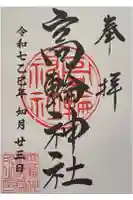 奉拝
高輪神社
令和七乙巳年 如月 廿三日